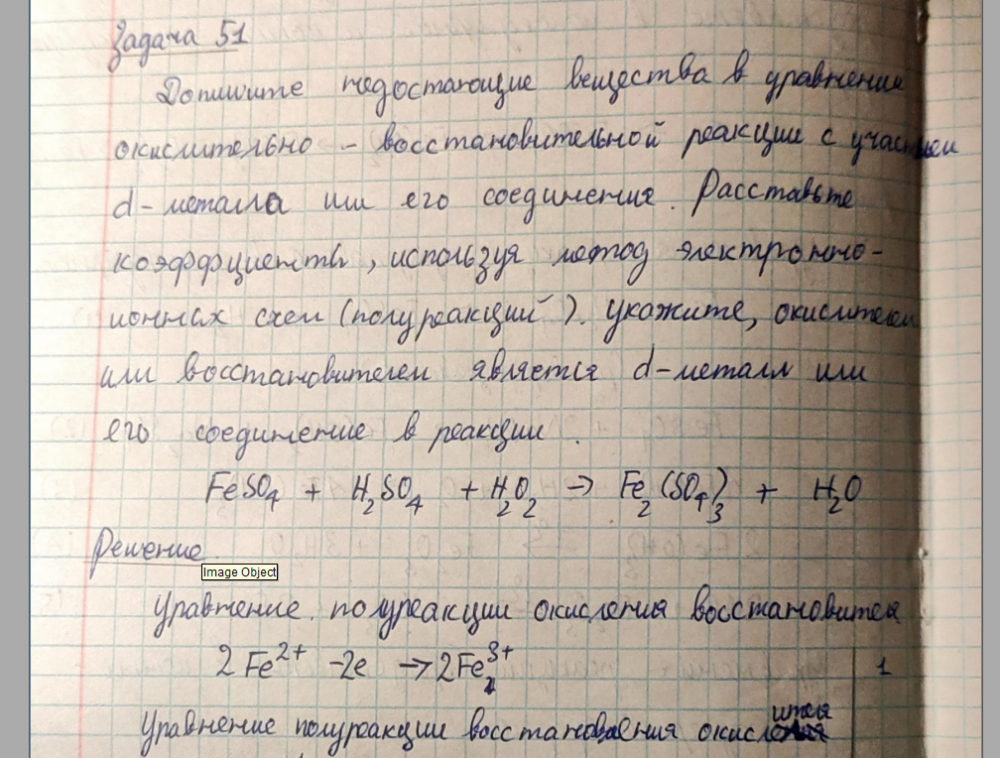 Задача 51
Допишите недостающие вещества в уравнении
окислительно - восстановительной реакции с участием
d-металла или его соединения. Расставьте
коэффициенты, используя метод электронно-
ионных схем (полуреакций). Укажите, окислителем
или восстановителем является d-металл или
его соединение в реакции.
FeSO₄ + H₂SO₄ + H₂O₂ → Fe₂(SO₄)₃ + H₂O
Решение.
Image Object
Уравнение полуреакции окисления восстановителя
2Fe²⁺ -2e → 2Fe³⁺ 1
Уравнение полуреакции восстановления окислителя